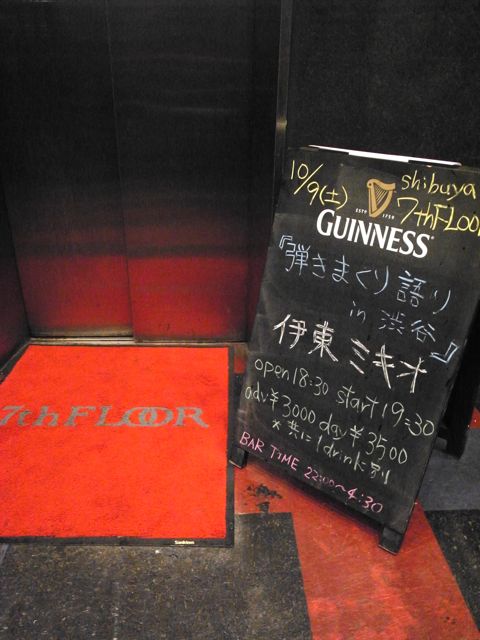 10/9(土)
shibuya
7thFLOOR
ESTD 1759
GUINNESS
『弾きまくり語り
in 渋谷』
伊東ミキオ
open 18:30 start 19:30
adv ¥3000 day ¥3500
*共に1drink別
BAR TIME 22:00~4:30
7th FLOOR